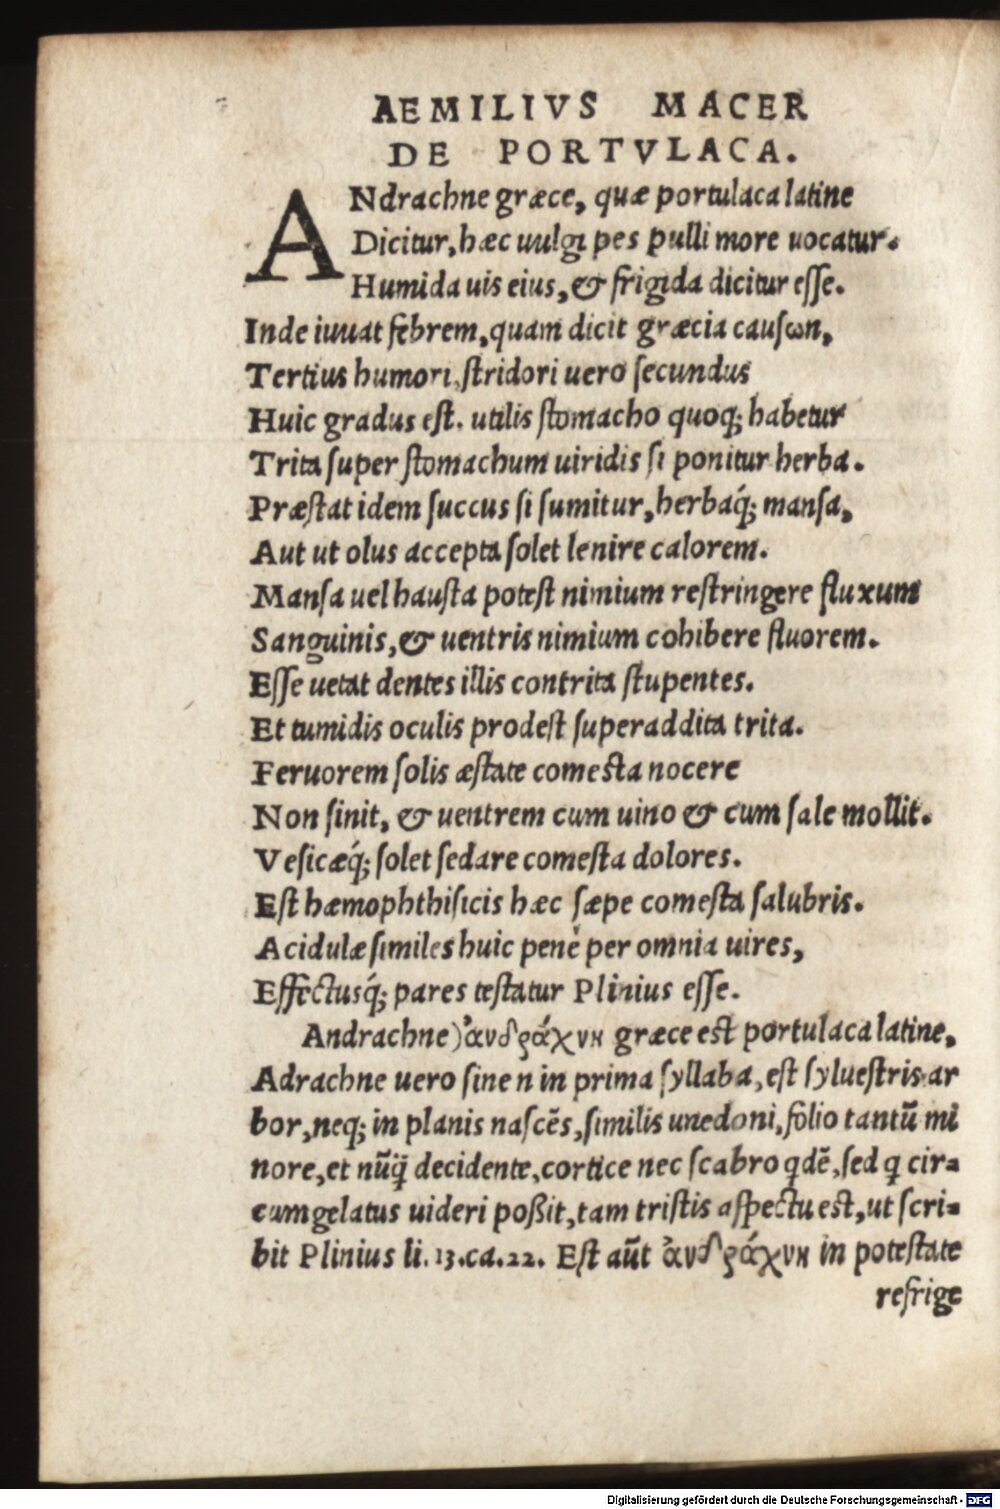 AEMILIVS MACER
DE PORTVLACA.
ANdrachne græce, quæ portulaca latine
Dicitur, hæc uulgi pes pulli more uocatur.
Humida uis eius, & frigida dicitur eſſe.
Inde iuuat febrem, quam dicit græcia cauſωn,
Tertius humori, ſtridori uero ſecundus
Huic gradus eſt. utilis ſtomacho quoq; habetur
Trita ſuper ſtomachum uiridis ſi ponitur herba.
Præſtat idem ſuccus ſi ſumitur, herbaq́; manſa,
Aut ut olus accepta ſolet lenire calorem.
Manſa uel hauſta poteſt nimium reſtringere fluxum
Sanguinis, & uentris nimium cohibere fluorem.
Eſſe uetat dentes illis contrita ſtupentes.
Et tumidis oculis prodeſt ſuperaddita trita.
Feruorem ſolis æſtate comeſta nocere
Non ſinit, & uentrem cum uino & cum ſale mollit.
Veſicæq́; ſolet ſedare comeſta dolores.
Eſt hæmophthiſicis hæc ſæpe comeſta ſalubris.
Acidulæ ſimiles huic penè per omnia uires,
Effectusq́; pares teſtatur Plinius eſſe.
Andrachne) ἀνδράχνη græce eſt portulaca latine,
Adrachne uero ſine n in prima ſyllaba, eſt ſylueſtris ar
bor, neq; in planis naſcẽs, ſimilis unedoni, folio tantũ mi
nore, et nũq̃ decidente, cortice nec ſcabro qdẽ, ſed q cir-
cumgelatus uideri poßit, tam triſtis aſpectu eſt, ut ſcri-
bit Plinius li. 13. ca. 22. Eſt aũt ἀνδράχνη in poteſtate
refrige
Digitalisierung gefördert durch die Deutsche Forschungsgemeinschaft - DFG